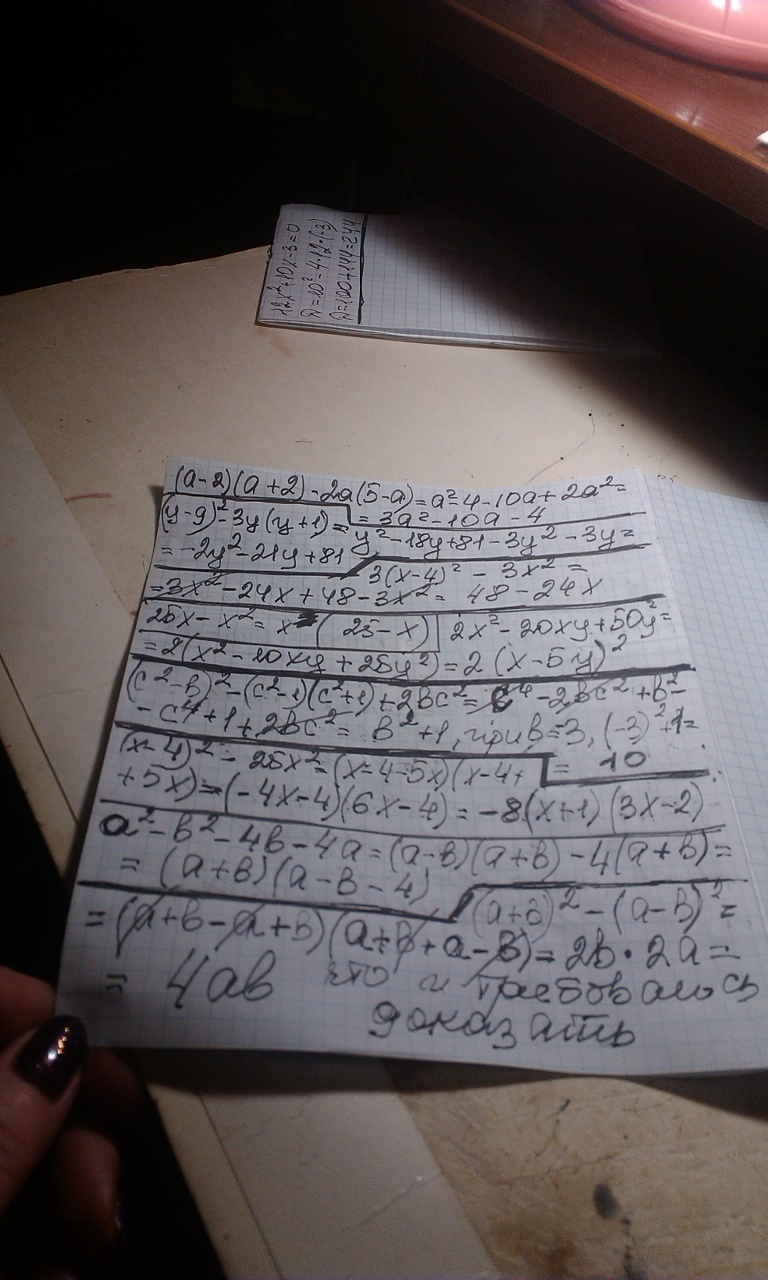 12x²+10x-3=0
D=10²-4·12·(-3)
D=100+144=244
(a-2)(a+2)-2a(5-a)=a²-4-10a+2a²=
=3a²-10a-4
(y-9)²-3y(y+1)=y²-18y+81-3y²-3y=
=-2y²-21y+81
3(x-4)²-3x²=
=3x²-24x+48-3x²=48-24x
25x-x²=x(25-x)
2x²-20xy+50y²=
=2(x²-10xy+25y²)=2(x-5y)²
(c²-b)²-(c²-1)(c²+1)+2bc²=c⁴-2bc²+b²-
-c⁴+1+2bc²=b²+1, при b=-3, (-3)²+1=
=10
(x-4)²-25x²=(x-4-5x)(x-4+
+5x)=(-4x-4)(6x-4)=-8(x+1)(3x-2)
a²-b²-4b-4a=(a-b)(a+b)-4(a+b)=
=(a+b)(a-b-4)
(a+b)²-(a-b)²=
=(a+b-a+b)(a+b+a-b)=2b·2a=
=4ab что и требовалось
доказать